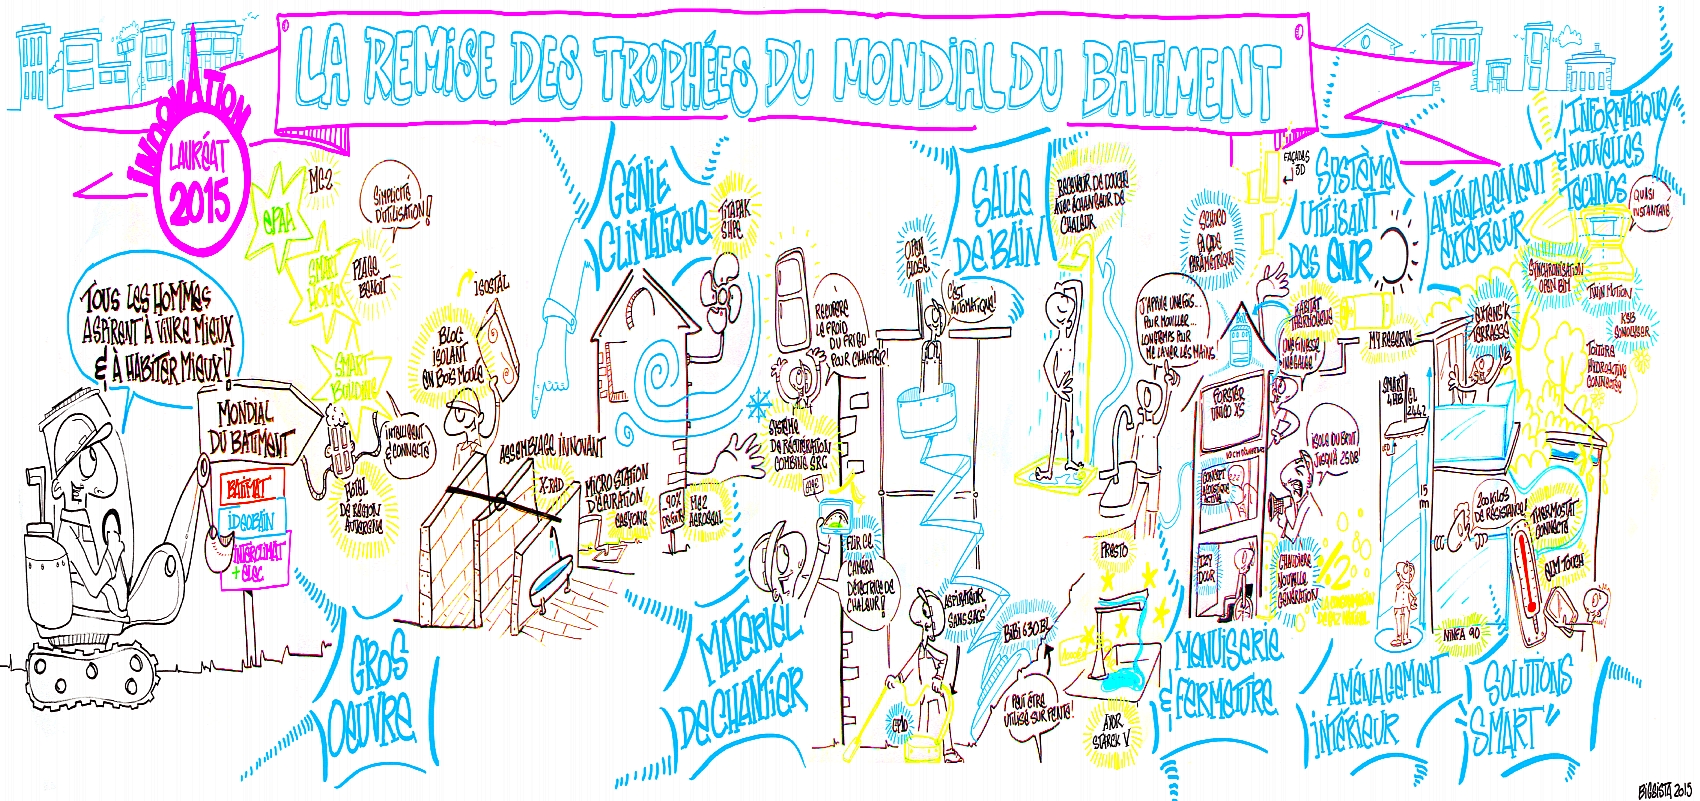 LA REMISE DES TROPHÉES DU MONDIAL DU BATIMENT
INNOVATION
LAURÉAT
2015
EPAA
MC2
SIMPLICITÉ
D'UTILISATION!
SMART
HOME
PLACE
BENOIT
SMART
BUILDING
TOUS LES HOMMES
ASPIRENT À VIVRE MIEUX
& À HABITER MIEUX!
MONDIAL
DU BATIMENT
BATIMAT
IDEOBAIN
INTERCLIMAT
+ ELEC
INTELLIGENT
& CONNECTÉ
HOTEL
DE RÉGION
AUVERGNE
ISOSTAL
BLOC
ISOLANT
EN BOIS MOULÉ
ASSEMBLAGE INNOVANT
X-RAD
GROS
OEUVRE
GÉNIE
CLIMATIQUE
MICRO STATION
D'ÉPURATION
-90%
DE FUITE
MEZ
AEROSEAL
RÉCUPÈRE
LE FROID
DU FRIGO
POUR CHAUFFER!
SYSTÈME
DE RÉCUPÉRATION
COMBINÉ SRC
MATERIEL
DE CHANTIER
FLIR C2
CAMÉRA
DÉTECTRICE DE
CHALEUR!
ASPIRATEUR
SANS SACS
BIBI 630 BL
PEUT ÊTRE
UTILISÉ SUR PENTE!
OPEN
CLOSE
C'EST
AUTOMATIQUE!
SALLE
DE BAIN
RECEVEUR DE DOUCHE
AVEC ÉCHANGEUR DE
CHALEUR
J'APPUIE UNE FOIS...
POUR MOUILLER...
LONGTEMPS POUR
ME LAVER LES MAINS!
PRESTO
AXOR
STARCK V
FAÇADES
3D
SCHÜCO
FAÇADE
PARAMÉTRIQUE
FORSTER
UNICO XS
CONCEPT
ACOUSTIQUE
ACTIVE
IZZY
DOOR
MENUISERIE
& FERMETURE
SYSTÈME
UTILISANT
DES ENR
HABITAT
THERMOGÈNE
UNE FINESSE
INÉGALÉE!
MY RESERVE
ISOLE DU BRUIT,
JUSQU'À 25DB!
CHAUDIÈRE
NOUVELLE
GÉNÉRATION
SMART GL
4HB 2442
15
M
AMÉNAGEMENT
INTÉRIEUR
AMÉNAGEMENT
EXTÉRIEUR
EXTENS'K
TERRASSE
200 KILOS
DE RÉSISTANCE!
NINFA 90
INFORMATIQUE
& NOUVELLES
TECHNOS
QUASI
INSTANTANÉ
SYNCHRONISATION
OPEN BIM
TWIN MOTION
KSB
SINOLYSER
TOITURE
HYDROACTIVE
CONNECTÉE
THERMOSTAT
CONNECTÉ
SLIM TOUCH
SOLUTIONS
"SMART"
BIGSISTA 2015